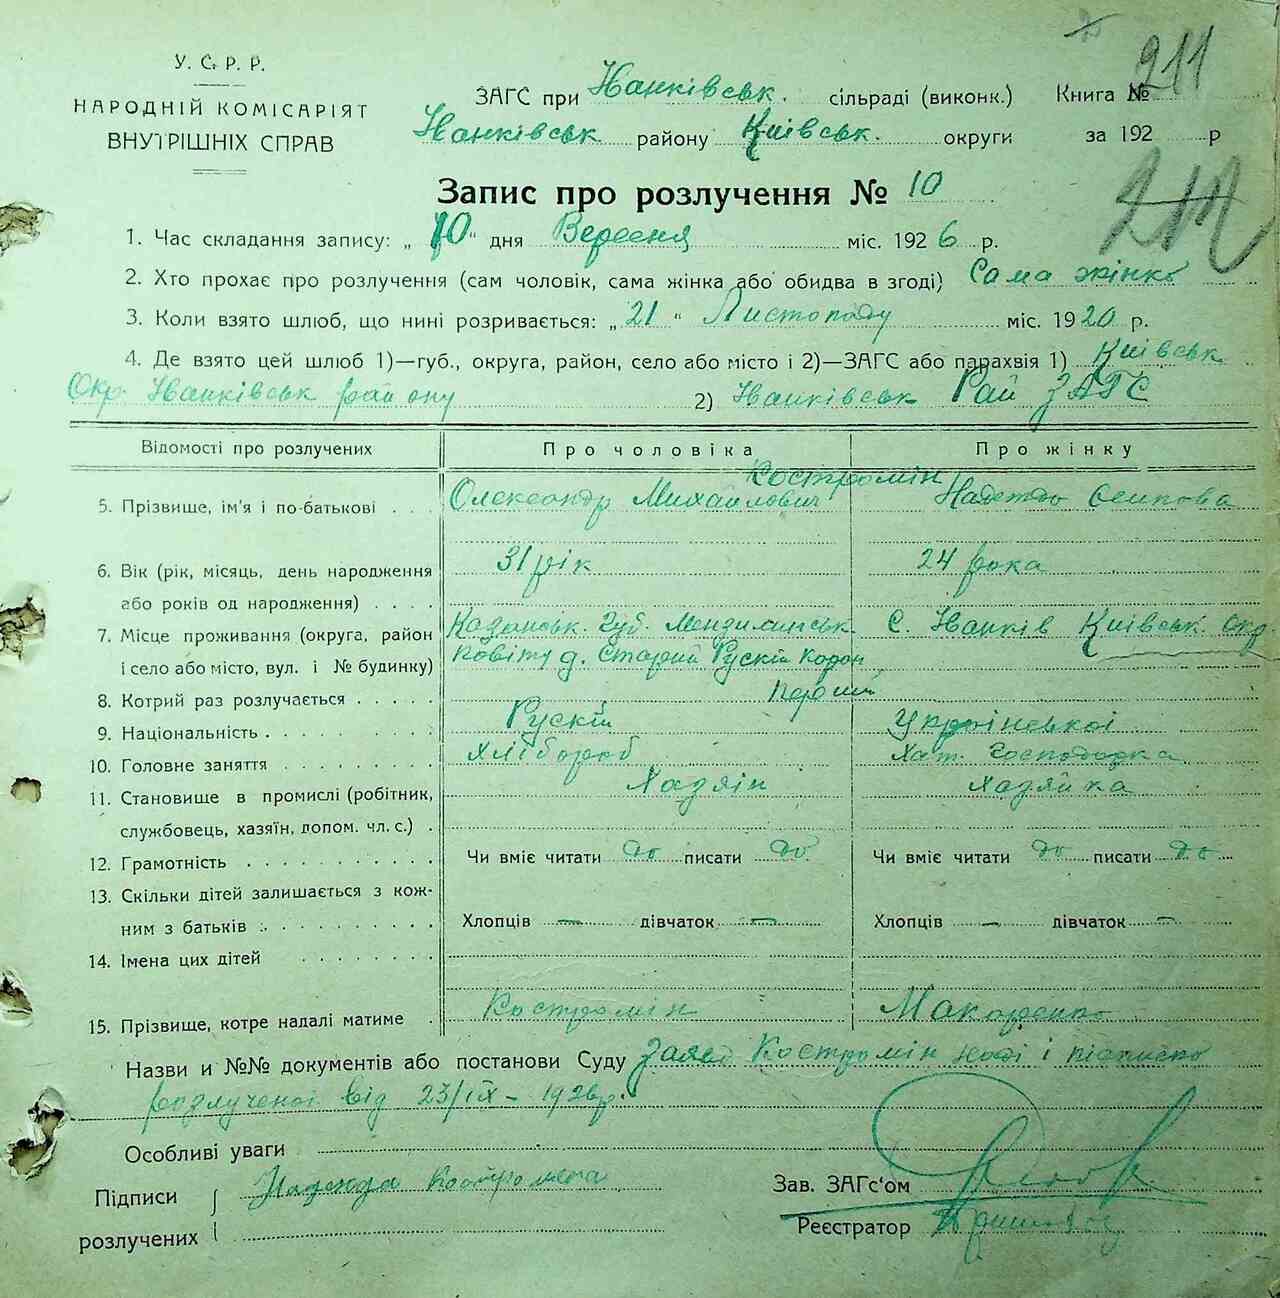 211
У. С. Р. Р.
НАРОДНІЙ КОМІСАРІЯТ
ВНУТРІШНІХ СПРАВ
ЗАГС при Іванківськ. сільраді (виконк.) Книга №
Іванківськ району Київськ. округи за 192 р
212
Запис про розлучення № 10
1. Час складання запису: „ 10 “ дня Вересня міс. 192 6 р.
2. Хто прохає про розлучення (сам чоловік, сама жінка або обидва в згоді) Сама жінка
3. Коли взято шлюб, що нині розривається: „ 21 “ Листопаду міс. 19 20 р.
4. Де взято цей шлюб 1)—губ., округа, район, село або місто і 2)—ЗАГС або парахвія 1) Київськ
Окр. Іванківськ району 2) Іванківськ Рай ЗАГС
Відомості про розлучених Про чоловіка Про жінку
Костромін
5. Прізвище, ім'я і по-батькові Олександр Михайлович Надежда Осипова
6. Вік (рік, місяць, день народження 31 рік 24 рока
або років од народження)
7. Місце проживання (округа, район Казанськ. Губ. с. Іванків Київськ. окр.
і село або місто, вул. і № будинку) Повіту д. Старий Рускій
8. Котрий раз розлучається перший
9. Національність Рускій Української
10. Головне заняття Хлібороб Хат. Господарка
11. Становище в промислі (робітник, Хазяін Хазяйка
службовець, хазяїн, допом. чл. с.)
12. Грамотність Чи вміє читати да писати да Чи вміє читати да писати да
13. Скільки дітей залишається з кож-
ним з батьків Хлопців — дівчаток — Хлопців — дівчаток —
14. Імена цих дітей
15. Прізвище, котре надалі матиме Костромін Макаренко
Назви и №№ документів або постанови Суду Заява Костромін і підписка
розлученої від 23/IX - 1926р.
Особливі уваги
Підписи Надежда Костромена Зав. ЗАГс'ом
розлучених Реєстратор